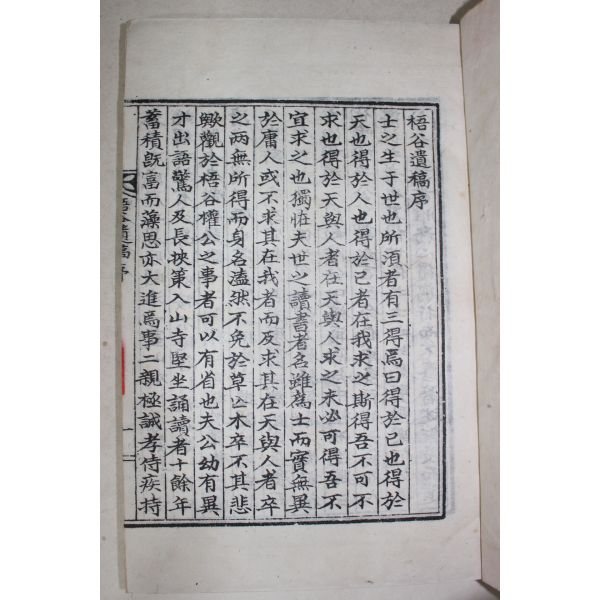 梧谷遺稿序
士之生于世也所湏者有三得焉曰得於己也得於
天也得於人也得於己者在我求之斯得吾不可不
求也得於天與人者在天與人求之未必可得吾不
宜求之也獨恠夫世之讀書者名雖篤士而實無異
於庸人或不求其在我者而及求其在天與人者卒
之兩無所得而身名溘然不免於草亡木卒不其悲
歟觀於梧谷權公之事者可以有省也夫公幼有異
才出語驚人及長挾策入山寺堅坐誦讀者十餘年
蓄積旣富而藻思亦大進焉事二親極誠孝侍疾持
梧谷遺稿序
一